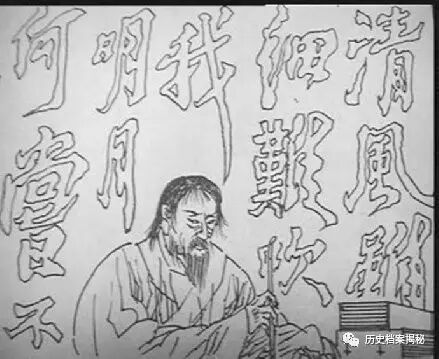 清風雖
細難吹
我
明月
何嘗不
历史档案揭秘